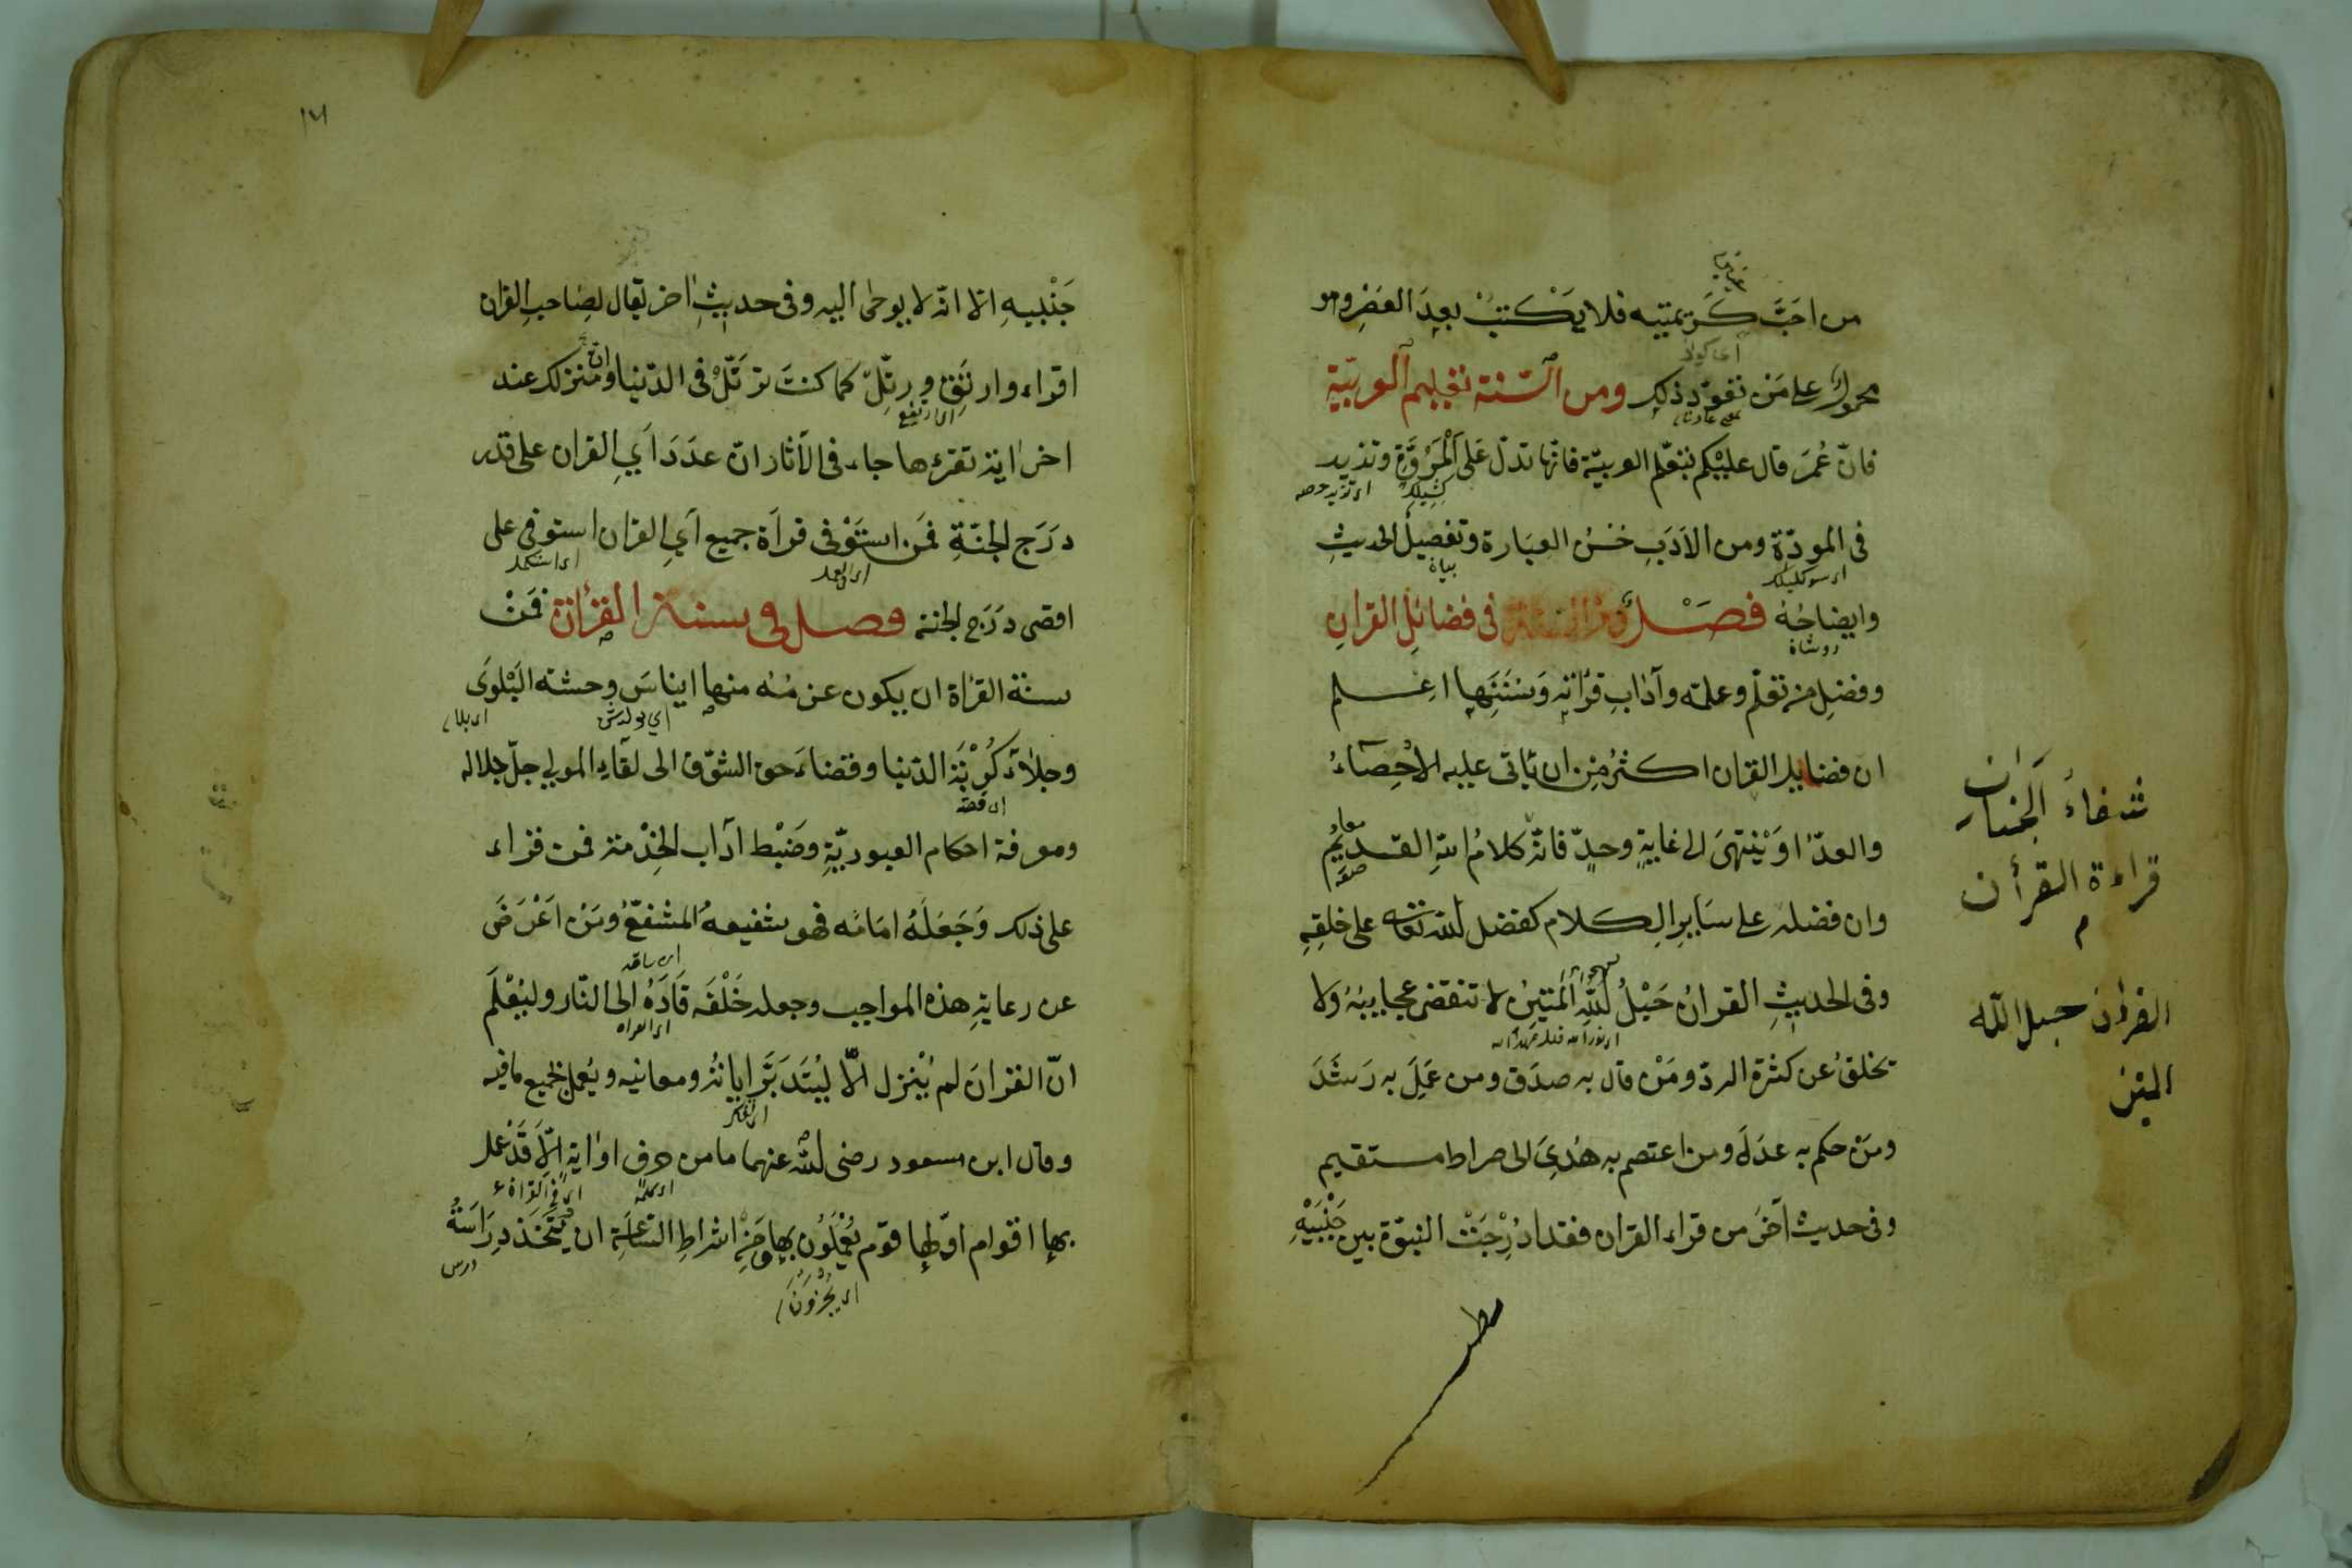 من احَبَّ كَريمتيه فلا يَكتبْ بعدَ العَصْرِ وهو
محمولٌ على مَن تعوّد ذلك ومن السّنة تعليم العربيّة
فانّ عُمرَ قال عليْكم بتعلّم العربيّة فانّها تدلّ عَلى الْمَرُوَّةِ وتزيد
في المودّة ومن الاَدَبِ حُسْنُ العِبَارة وتفصيلُ الحديثِ
وايضاحُهُ فَصْلٌ في فضائلِ القرانِ
وفضلِ من تعلّم وعلّمه وآدابِ قرٰاتهِ وَسُنَنِهِا اعلم
ان فضايل القران اكثرُ مِن ان ياتى عليه الاحْصَاءُ
والعدّ اوَ يْنتهىَ الى غايةٍ وحدٍّ فانّه كلامُ اللهِ القديمُ
وان فضله على سَايرِ الكلام كفضل الله تعالى على خلقِهِ
وفى الحديثِ القرانُ حَبْلُ اللهِ المتينُ لا تنقضى عجايبُهُ ولا
يخلقُ عن كثرة الردّ ومَنْ قال به صدَق ومن عَمِلَ به رَشَدَ
ومَن حكم به عدَلَ ومن اعتصم به هُدِىَ الى صراط مستقيم
وفى حديث آخَرَ من قراء القران فقد ادُرِجَتْ النبّوة بين جَنْبَيْهِ
شفاءُ الجنان
قراءة القرأن
م
القرأن حبل الله
المتين
١٧١
جَنْبيهِ الا انّه لا يوحٰى اليه وفى حديثٍ اخر يقال لصِاحبِ القران
اقراء وارتَقِ ورتِّلْ كما كنتَ ترتّلْ فى الدّنيا وان منزلك عند
اخر اٰية تقرءها جاء فى الآثار انّ عدَدَ آيِ القران على قدر
اى ارتفع
درَجِ الجنّةِ فمَن استَوْفى قرآةَ جميع آيِ القران استوفى على
اقصى درَجِ الجنة فصل فى سنة القرأة فمَنْ
سنة القراة ان يكون عرضُه منها ايناسَ وحشته البَلْوَى
وجلآءَ كُرْبَةِ الدّنيا وقضاءَ حق الشوّق الى لقآءِ المولى جلّ جلاله
ومعرفة احكام العبوديّةِ وضَبْط آداب الخِدْمة فمن قراء
على ذلك وَجَعَلَهُ امَامَه فهو شفيعهُ المشفعّ ومَن اعَرَضَ
عن رعايةِ هذه المواجب وجعله خَلْفَه قَادَهُ الى النّار وليُعْلَمَ
انّ القرانَ لم يُنزل الاّ ليُتَدبَّرَ اياتهُ ومعانيه ويُعمل بجميع مافيه
وقال ابن مسعود رضى الله عنهما ما من حرف او اٰيةٍ الاّ قَدْ عمل
بها اقوام او لها قوم يَعْمَلُون بها ومن اشراطِ السّاعةِ ان يتّخذ دِرَاسَتهُ